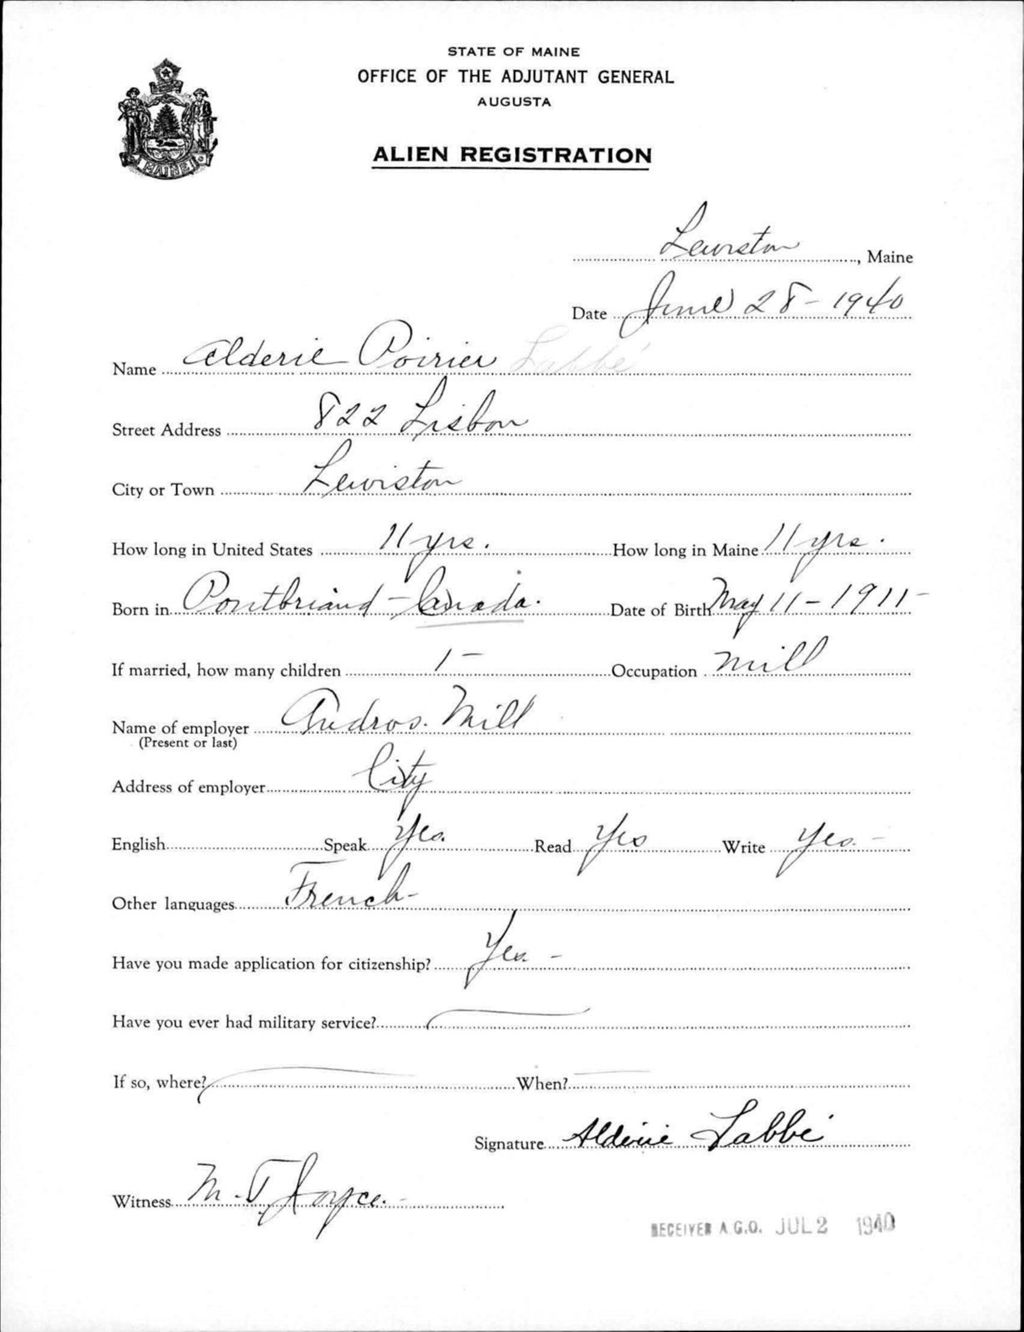 STATE OF MAINE
OFFICE OF THE ADJUTANT GENERAL
AUGUSTA
MAINE
ALIEN REGISTRATION
Lewiston, Maine
Date June 28-1940
Name Alderie Poirier Labbé
Street Address 822 Lisbon
City or Town Lewiston
How long in United States 11 yrs. How long in Maine 11 yrs.
Born in Pontbriand - Canada. Date of Birth May 11-1911-
If married, how many children 1- Occupation mill
Name of employer Andros. Mill
(Present or last)
Address of employer City
English Speak Yes. Read Yes Write Yes. -
Other languages French-
Have you made application for citizenship? Yes -
Have you ever had military service?
If so, where? When?
Signature Alderie Labbé
Witness M. T. Joyce. -
RECEIVED A.G.O. JUL 2 1940